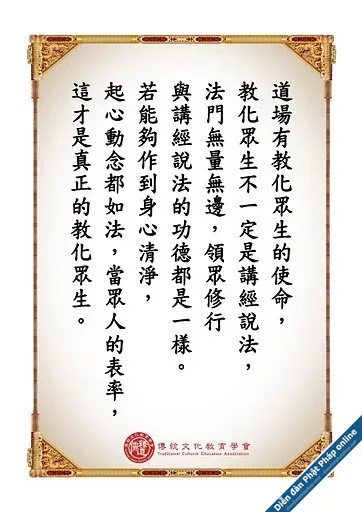 道場有教化眾生的使命，
教化眾生不一定是講經說法，
法門無量無邊，領眾修行
與講經說法的功德都是一樣。
若能夠作到身心清淨，
起心動念都如法，當眾人的表率，
這才是真正的教化眾生。
傳統文化教育學會
Traditional Cultural Education Association
Diễn đàn Phật Pháp online